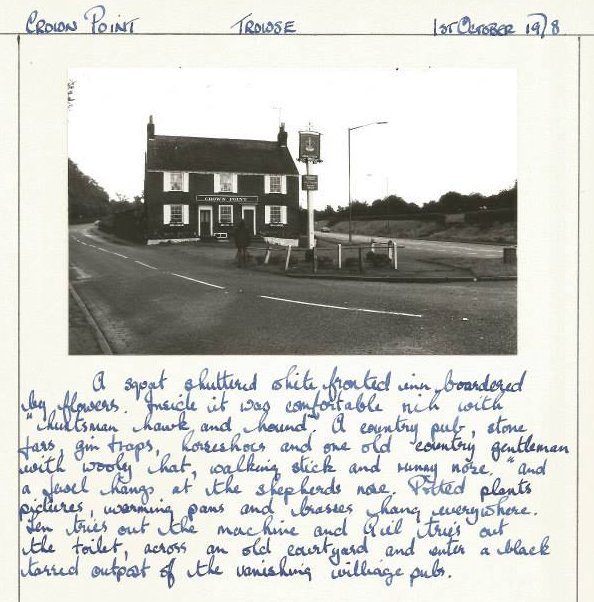 CROWN POINT TROWSE 1ST OCTOBER 1978
CROWN POINT
A squat shuttered white fronted inn boardered
by flowers. Inside it was comfortable rich with
"huntsman hawk and hound". A country pub, stone
jars, gin traps, horseshoes and one old country gentleman
with wooly hat, walking stick and runny nose. "and
a jewel hangs at the shepherds nose. Potted plants
pictures, warming pans and brasses hang everywhere.
Len tries out the machine and tries out
the toilet, across an old courtyard and enter a black
tarred outpost of the vanishing williage pubs.